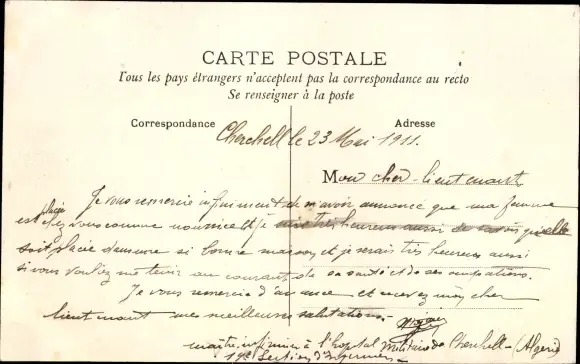 CARTE POSTALE
Tous les pays étrangers n'acceptent pas la correspondance au recto
Se renseigner à la poste
Correspondance
Adresse
Cherchell le 23 Mai 1911.
Mon cher lieutenant
Je vous remercie infiniment de m'avoir annoncé que ma femme
est placée chez vous comme nourrice et je suis très heureux aussi de savoir qu'elle
soit placée dans une si bonne maison, et je serais très heureux aussi
si vous vouliez me tenir au courant, de sa santé et de ses occupations.
Je vous remercie d'avance et recevez mon cher
lieutenant mes meilleures salutations.
maître infirmier à l'hopital militaire de Cherchell (Algérie)
19e Section d'Infirmiers